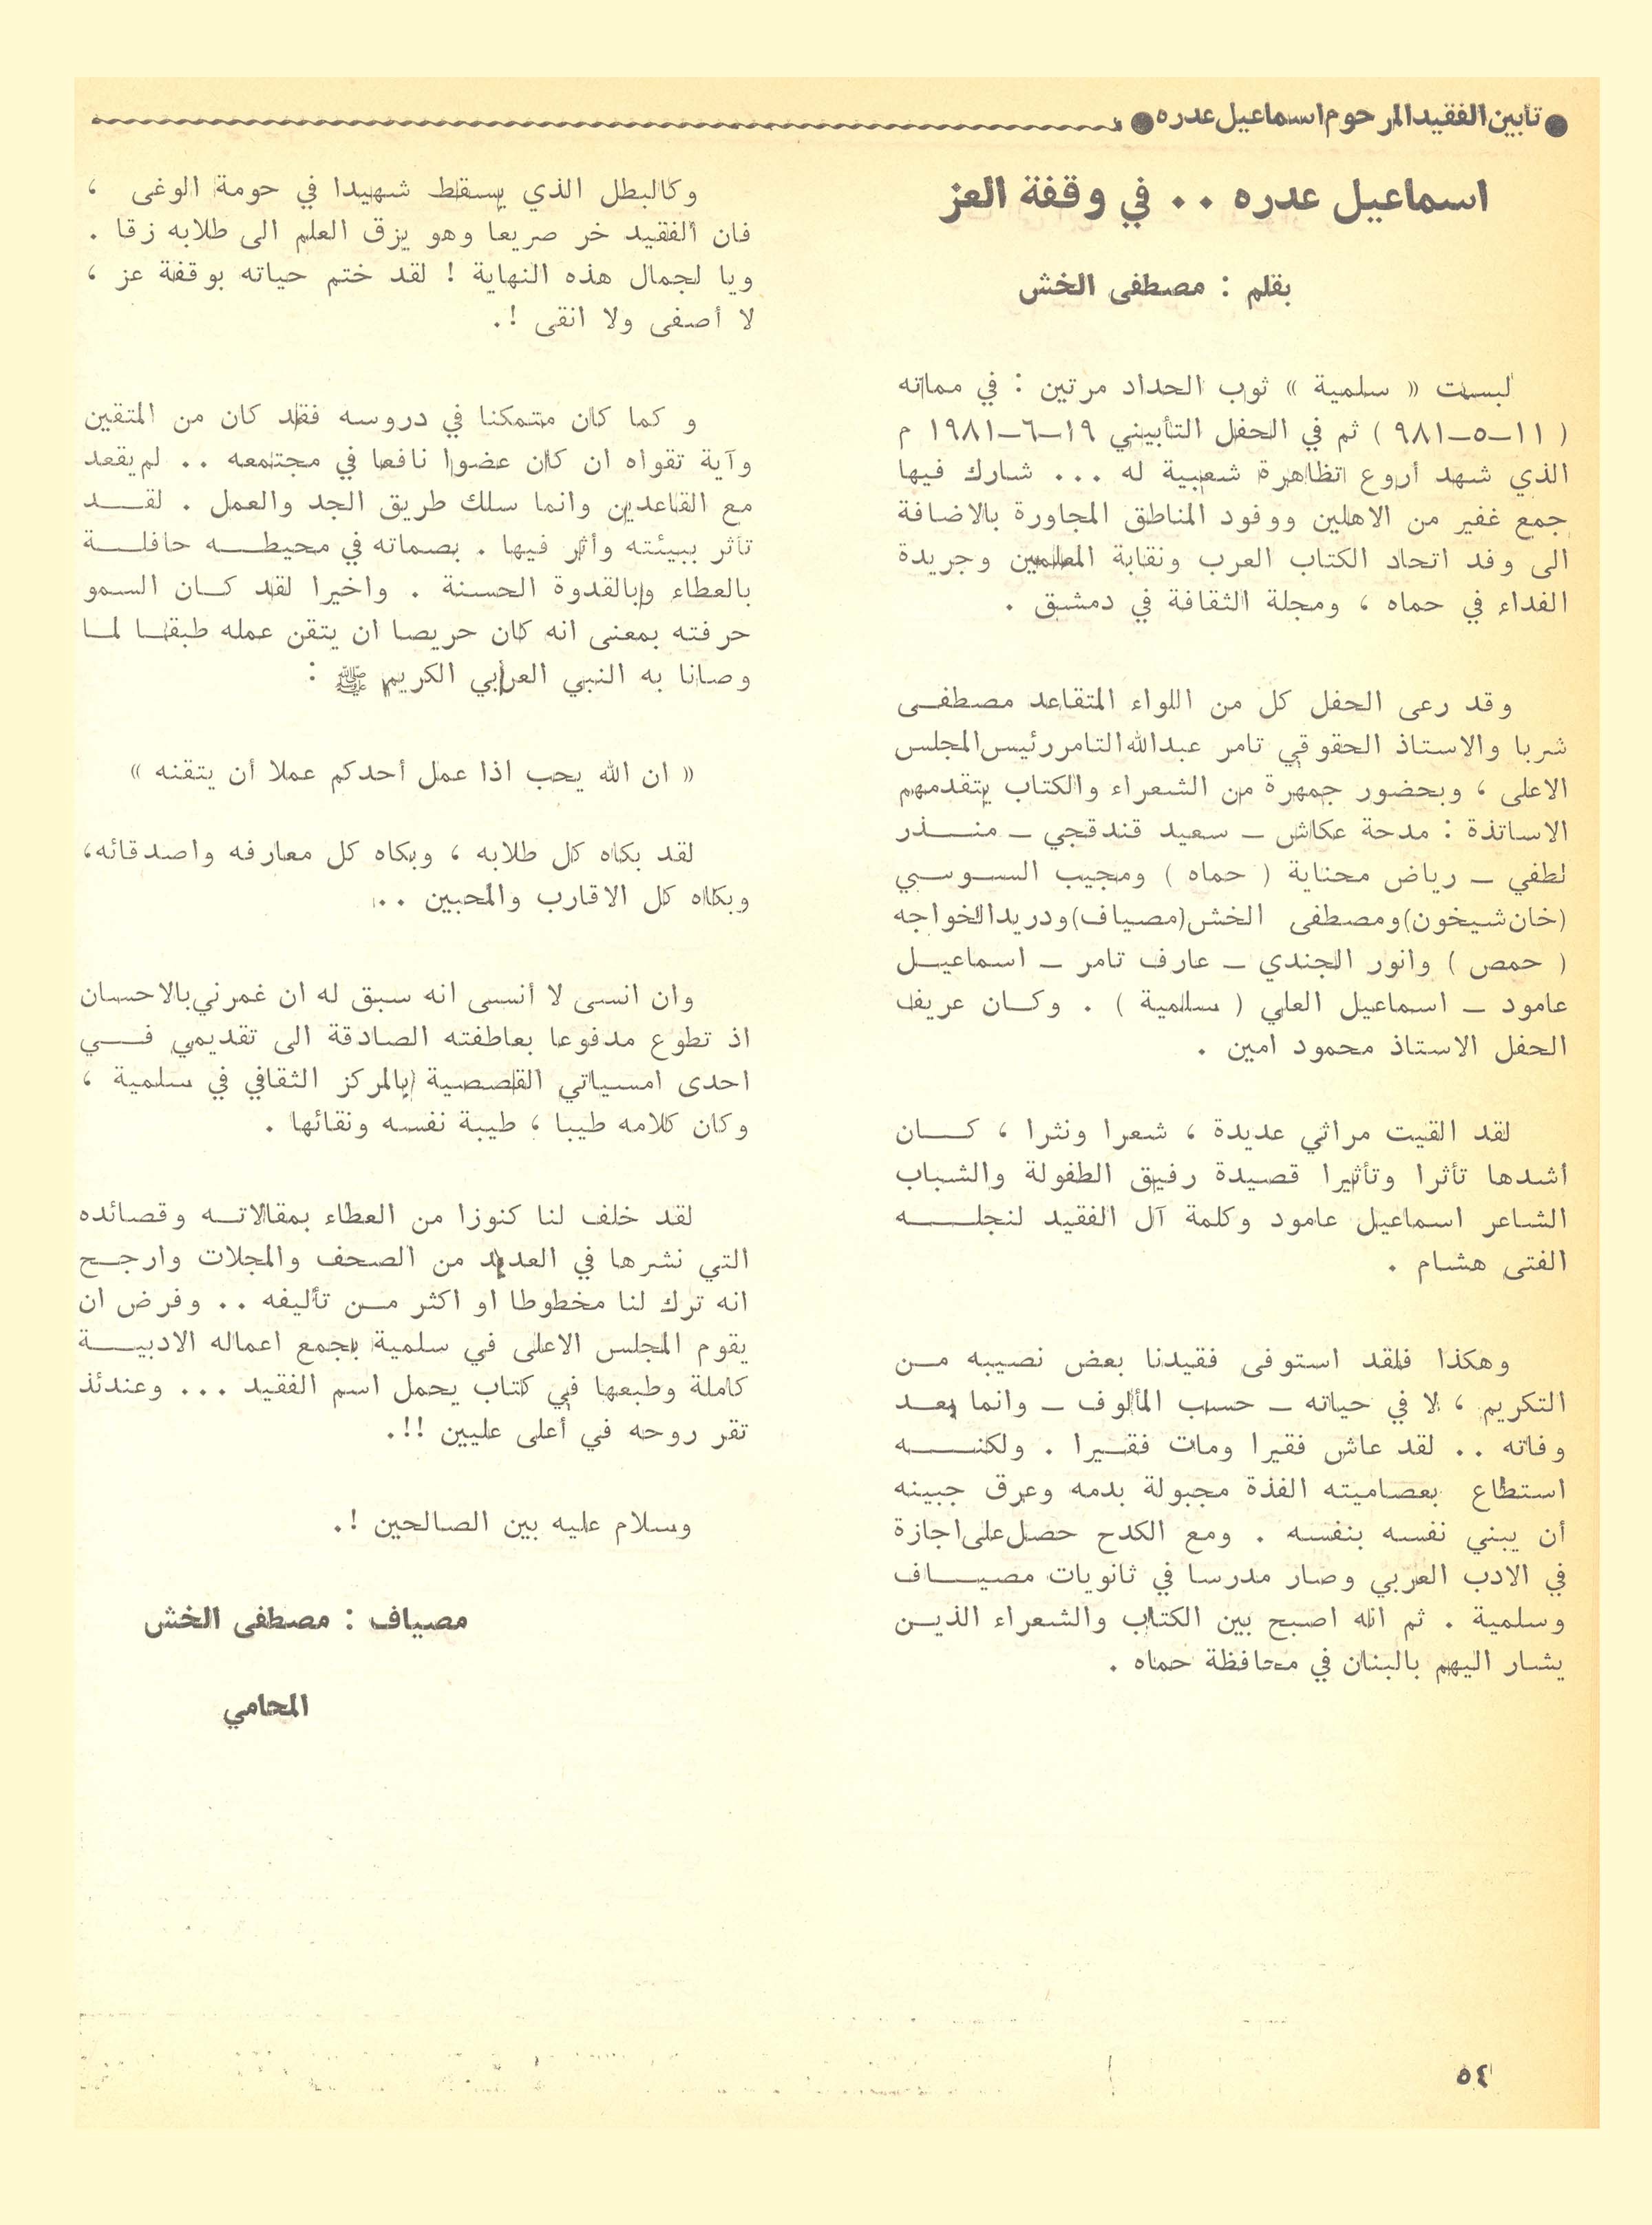 ● تأبين الفقيد المرحوم اسماعيل عدره ●
اسماعيل عدره .. في وقفة العز
بقلم : مصطفى الخش
لبست « سلمية » ثوب الحداد مرتين : في مماته
( ١١-٥-٩٨١ ) ثم في الحفل التأبيني ١٩-٦-١٩٨١ م
الذي شهد أروع تظاهرة شعبية له ... شارك فيها
جمع غفير من الاهلين ووفود المناطق المجاورة بالاضافة
الى وفد اتحاد الكتاب العرب ونقابة المعلمين وجريدة
الفداء في حماه ، ومجلة الثقافة في دمشق .
وقد رعى الحفل كل من اللواء المتقاعد مصطفى
شربا والاستاذ الحقوقي تامر عبدالله التامر رئيس المجلس
الاعلى ، وبحضور جمهرة من الشعراء والكتاب يتقدمهم
الاساتذة : مدحة عكاش - سعيد قندقجي - منذر
لطفي - رياض محناية ( حماه ) ومجيب السوسي
(خان شيخون) ومصطفى الخش (مصياف) ودريد الخواجه
( حمص ) وانور الجندي - عارف تامر - اسماعيل
عامود - اسماعيل العلي ( سلمية ) . وكان عريف
الحفل الاستاذ محمود امين .
لقد القيت مراثي عديدة ، شعرا ونثرا ، كان
أشدها تأثرا وتأثيرا قصيدة رفيق الطفولة والشباب
الشاعر اسماعيل عامود وكلمة آل الفقيد لنجله
الفتى هشام .
وهكذا فلقد استوفى فقيدنا بعض نصيبه من
التكريم ، لا في حياته - حسب المألوف - وانما بعد
وفاته .. لقد عاش فقيرا ومات فقيرا . ولكنه
استطاع بعصاميته الفذة مجبولة بدمه وعرق جبينه
أن يبني نفسه بنفسه . ومع الكدح حصل على اجازة
في الادب العربي وصار مدرسا في ثانويات مصياف
وسلمية . ثم انه اصبح بين الكتاب والشعراء الذين
يشار اليهم بالبنان في محافظة حماه .
وكالبطل الذي يسقط شهيدا في حومة الوغى ،
فان الفقيد خر صريعا وهو يزق العلم الى طلابه زقا .
ويا لجمال هذه النهاية ! لقد ختم حياته بوقفة عز ،
لا أصفى ولا انقى !.
و كما كان متمكنا في دروسه فقد كان من المتقين
وآية تقواه ان كان عضوا نافعا في مجتمعه .. لم يقعد
مع القاعدين وانما سلك طريق الجد والعمل . لقد
تأثر ببيئته وأثر فيها . بصماته في محيطه حافلة
بالعطاء وبالقدوة الحسنة . واخيرا لقد كان السمو
حرفته بمعنى انه كان حريصا ان يتقن عمله طبقا لما
وصانا به النبي العرابي الكريم ﷺ :
« ان الله يحب اذا عمل أحدكم عملا أن يتقنه »
لقد بكاه كل طلابه ، وبكاه كل معارفه واصدقائه،
وبكاه كل الاقارب والمحبين ..
وان انسى لا أنسى انه سبق له ان غمرني بالاحسان
اذ تطوع مدفوعا بعاطفته الصادقة الى تقديمي في
احدى امسياتي القصصية بالمركز الثقافي في سلمية ،
وكان كلامه طيبا ، طيبة نفسه ونقائها .
لقد خلف لنا كنوزا من العطاء بمقالاته وقصائده
التي نشرها في العديد من الصحف والمجلات وارجح
انه ترك لنا مخطوطا او اكثر من تأليفه .. وفرض ان
يقوم المجلس الاعلى في سلمية بجمع اعماله الادبية
كاملة وطبعها في كتاب يحمل اسم الفقيد ... وعندئذ
تقر روحه في أعلى عليين !!.
وسلام عليه بين الصالحين !.
مصياف : مصطفى الخش
المحامي
٥٤